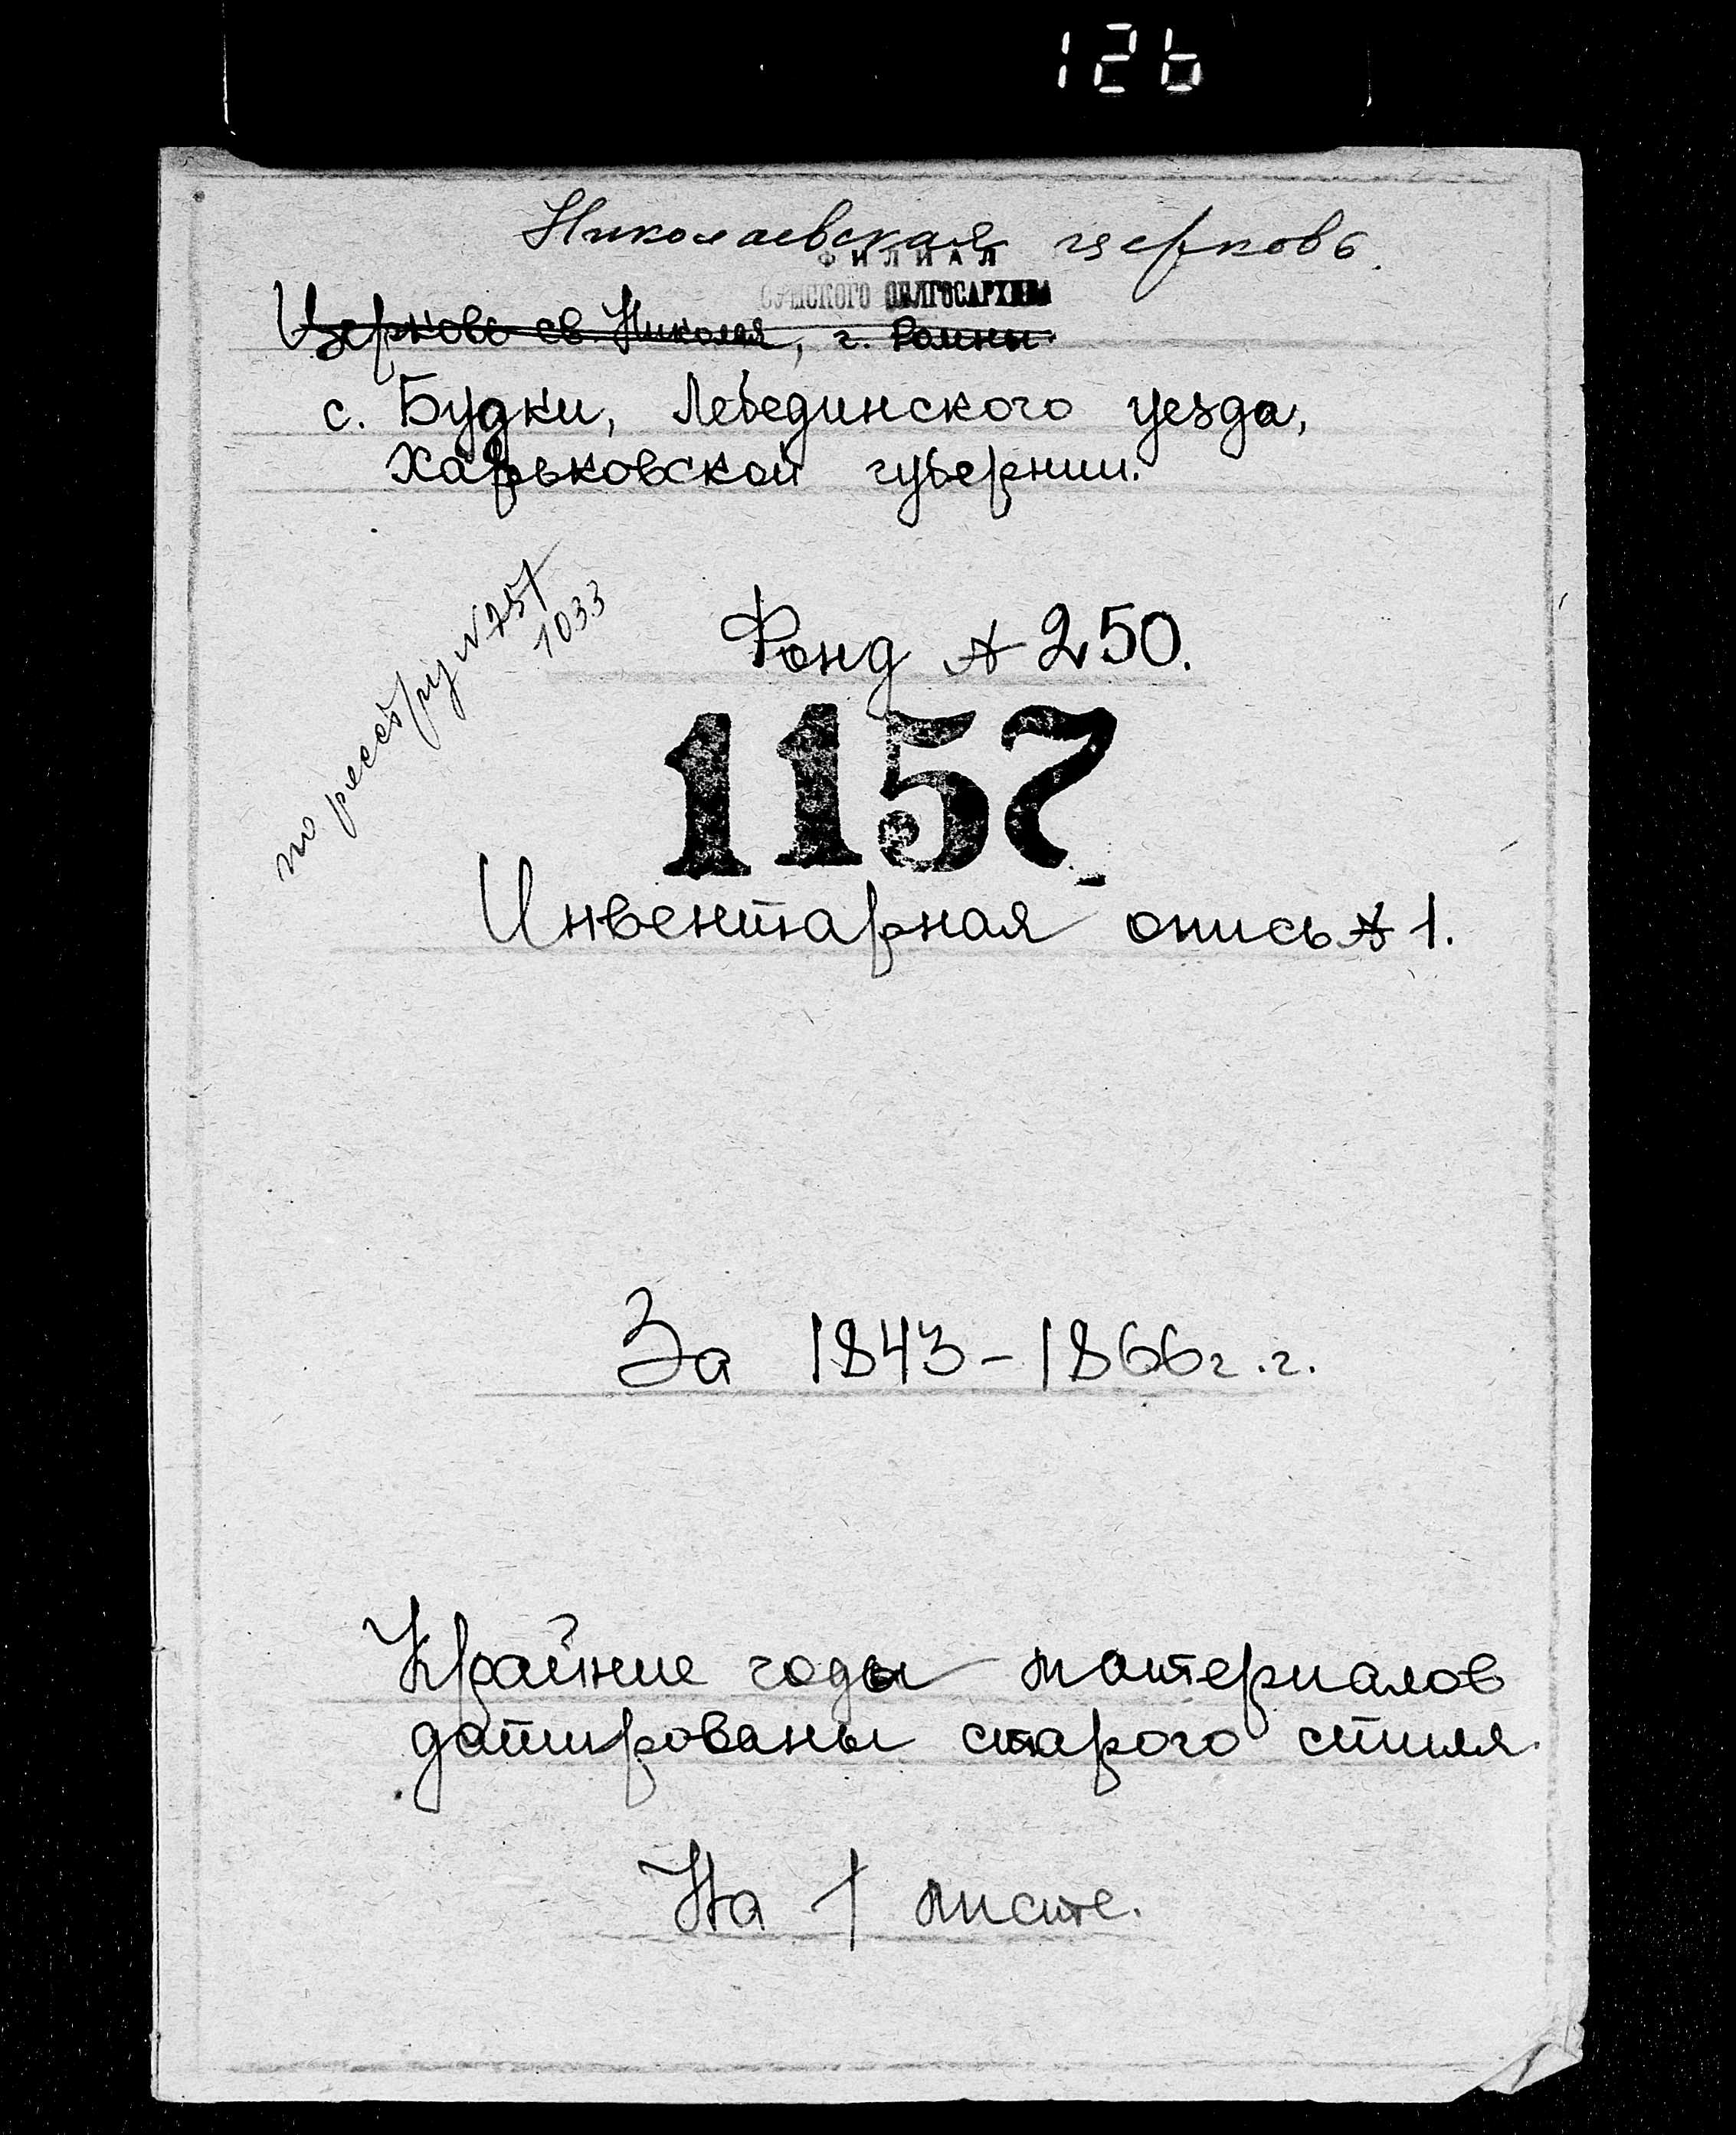 126
Николаевская церковь.
ФИЛИАЛ
СУМСКОГО ОБЛГОСАРХИВА
Церковь св. Николая, г. Ромны
с. Будки, Лебединского уезда,
Харьковской губернии.
по реестру N 757
1033
Фонд № 250.
1157
Инвентарная опись № 1.
За 1843-1866 г.г.
Крайние годы материалов
датированы старого стиля.
На 1 листе.